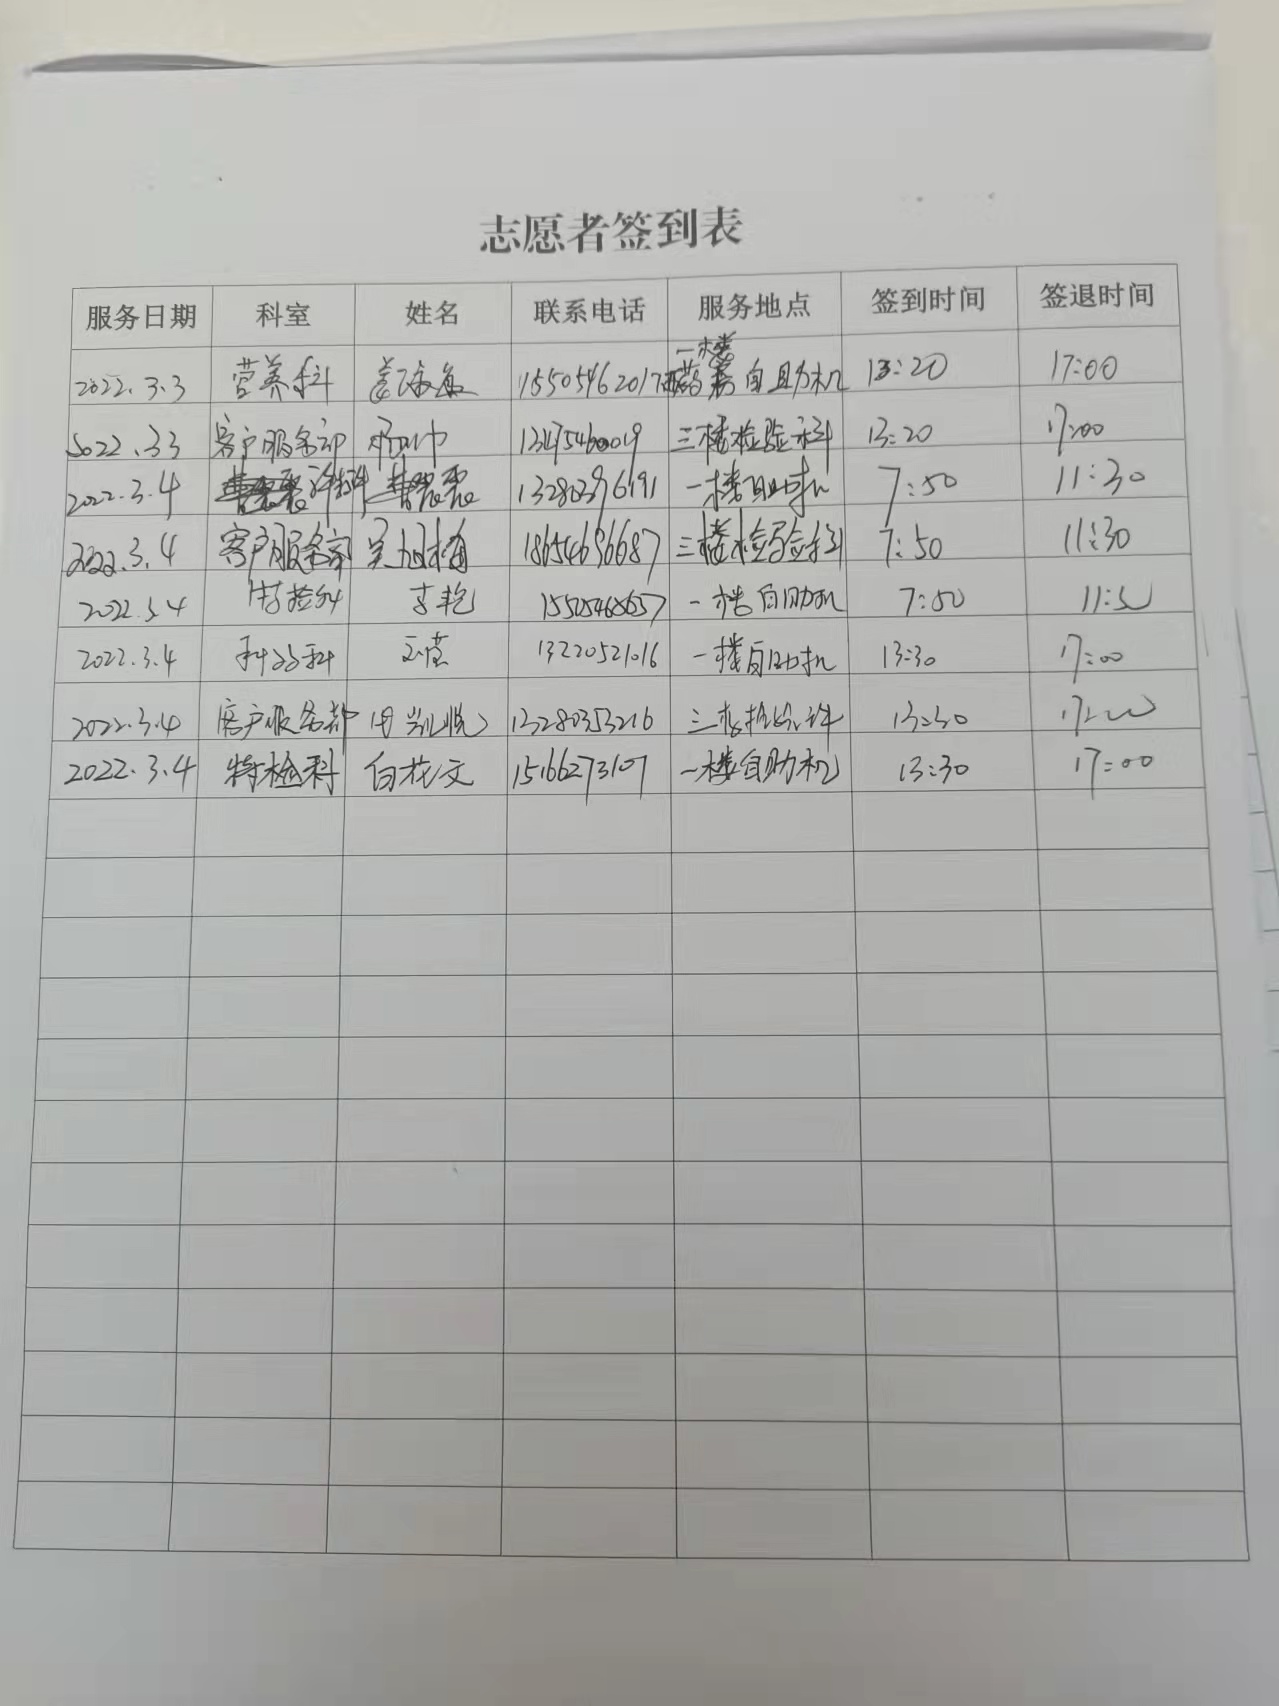 志愿者签到表
服务日期 科室 姓名 联系电话 服务地点 签到时间 签退时间
2022.3.3 营养科 15505462017 一楼自助机 13:20 17:00
2022.3.3 客户服务部 13475460019 三楼检验科 13:20 17:00
2022.3.4 13280396191 一楼自助机 7:50 11:30
2022.3.4 客户服务部 18654696687 三楼检验科 7:50 11:30
2022.3.4 特检科 李艳 一楼自助机 7:50 11:30
2022.3.4 13220521016 一楼自助机 13:30 17:00
2022.3.4 客户服务部 13280353216 三楼检验科 13:30 17:00
2022.3.4 特检科 白花文 15166273107 一楼自助机 13:30 17:00